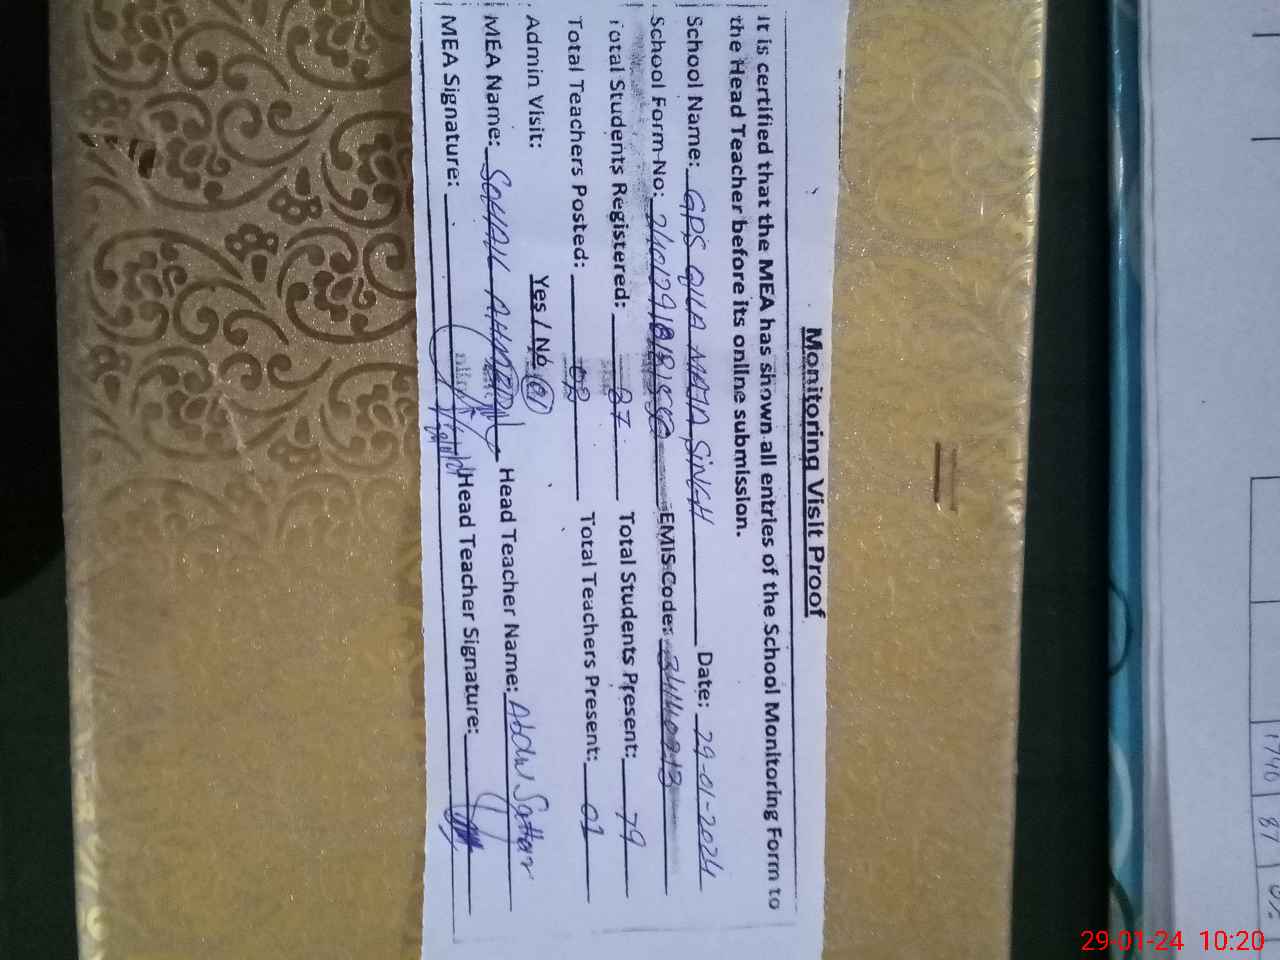 Monitoring Visit Proof
It is certified that the MEA has shown all entries of the School Monitoring Form to
the Head Teacher before its online submission.
School Name: GPS QILA NATHA SINGH Date: 29-01-2024
School Form-No: EMIS Code:
Total Students Registered: 87 Total Students Present: 79
Total Teachers Posted: Total Teachers Present: 01
Admin Visit: Yes / No 01
MEA Name: SOHAIL AHMED Head Teacher Name: Abdul Sattar
MEA Signature: Head Teacher Signature:
1740 87
29-01-24 10:20